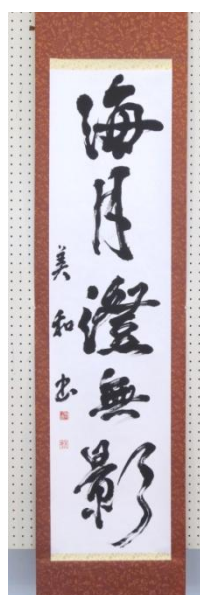 海月澄無影
美和書